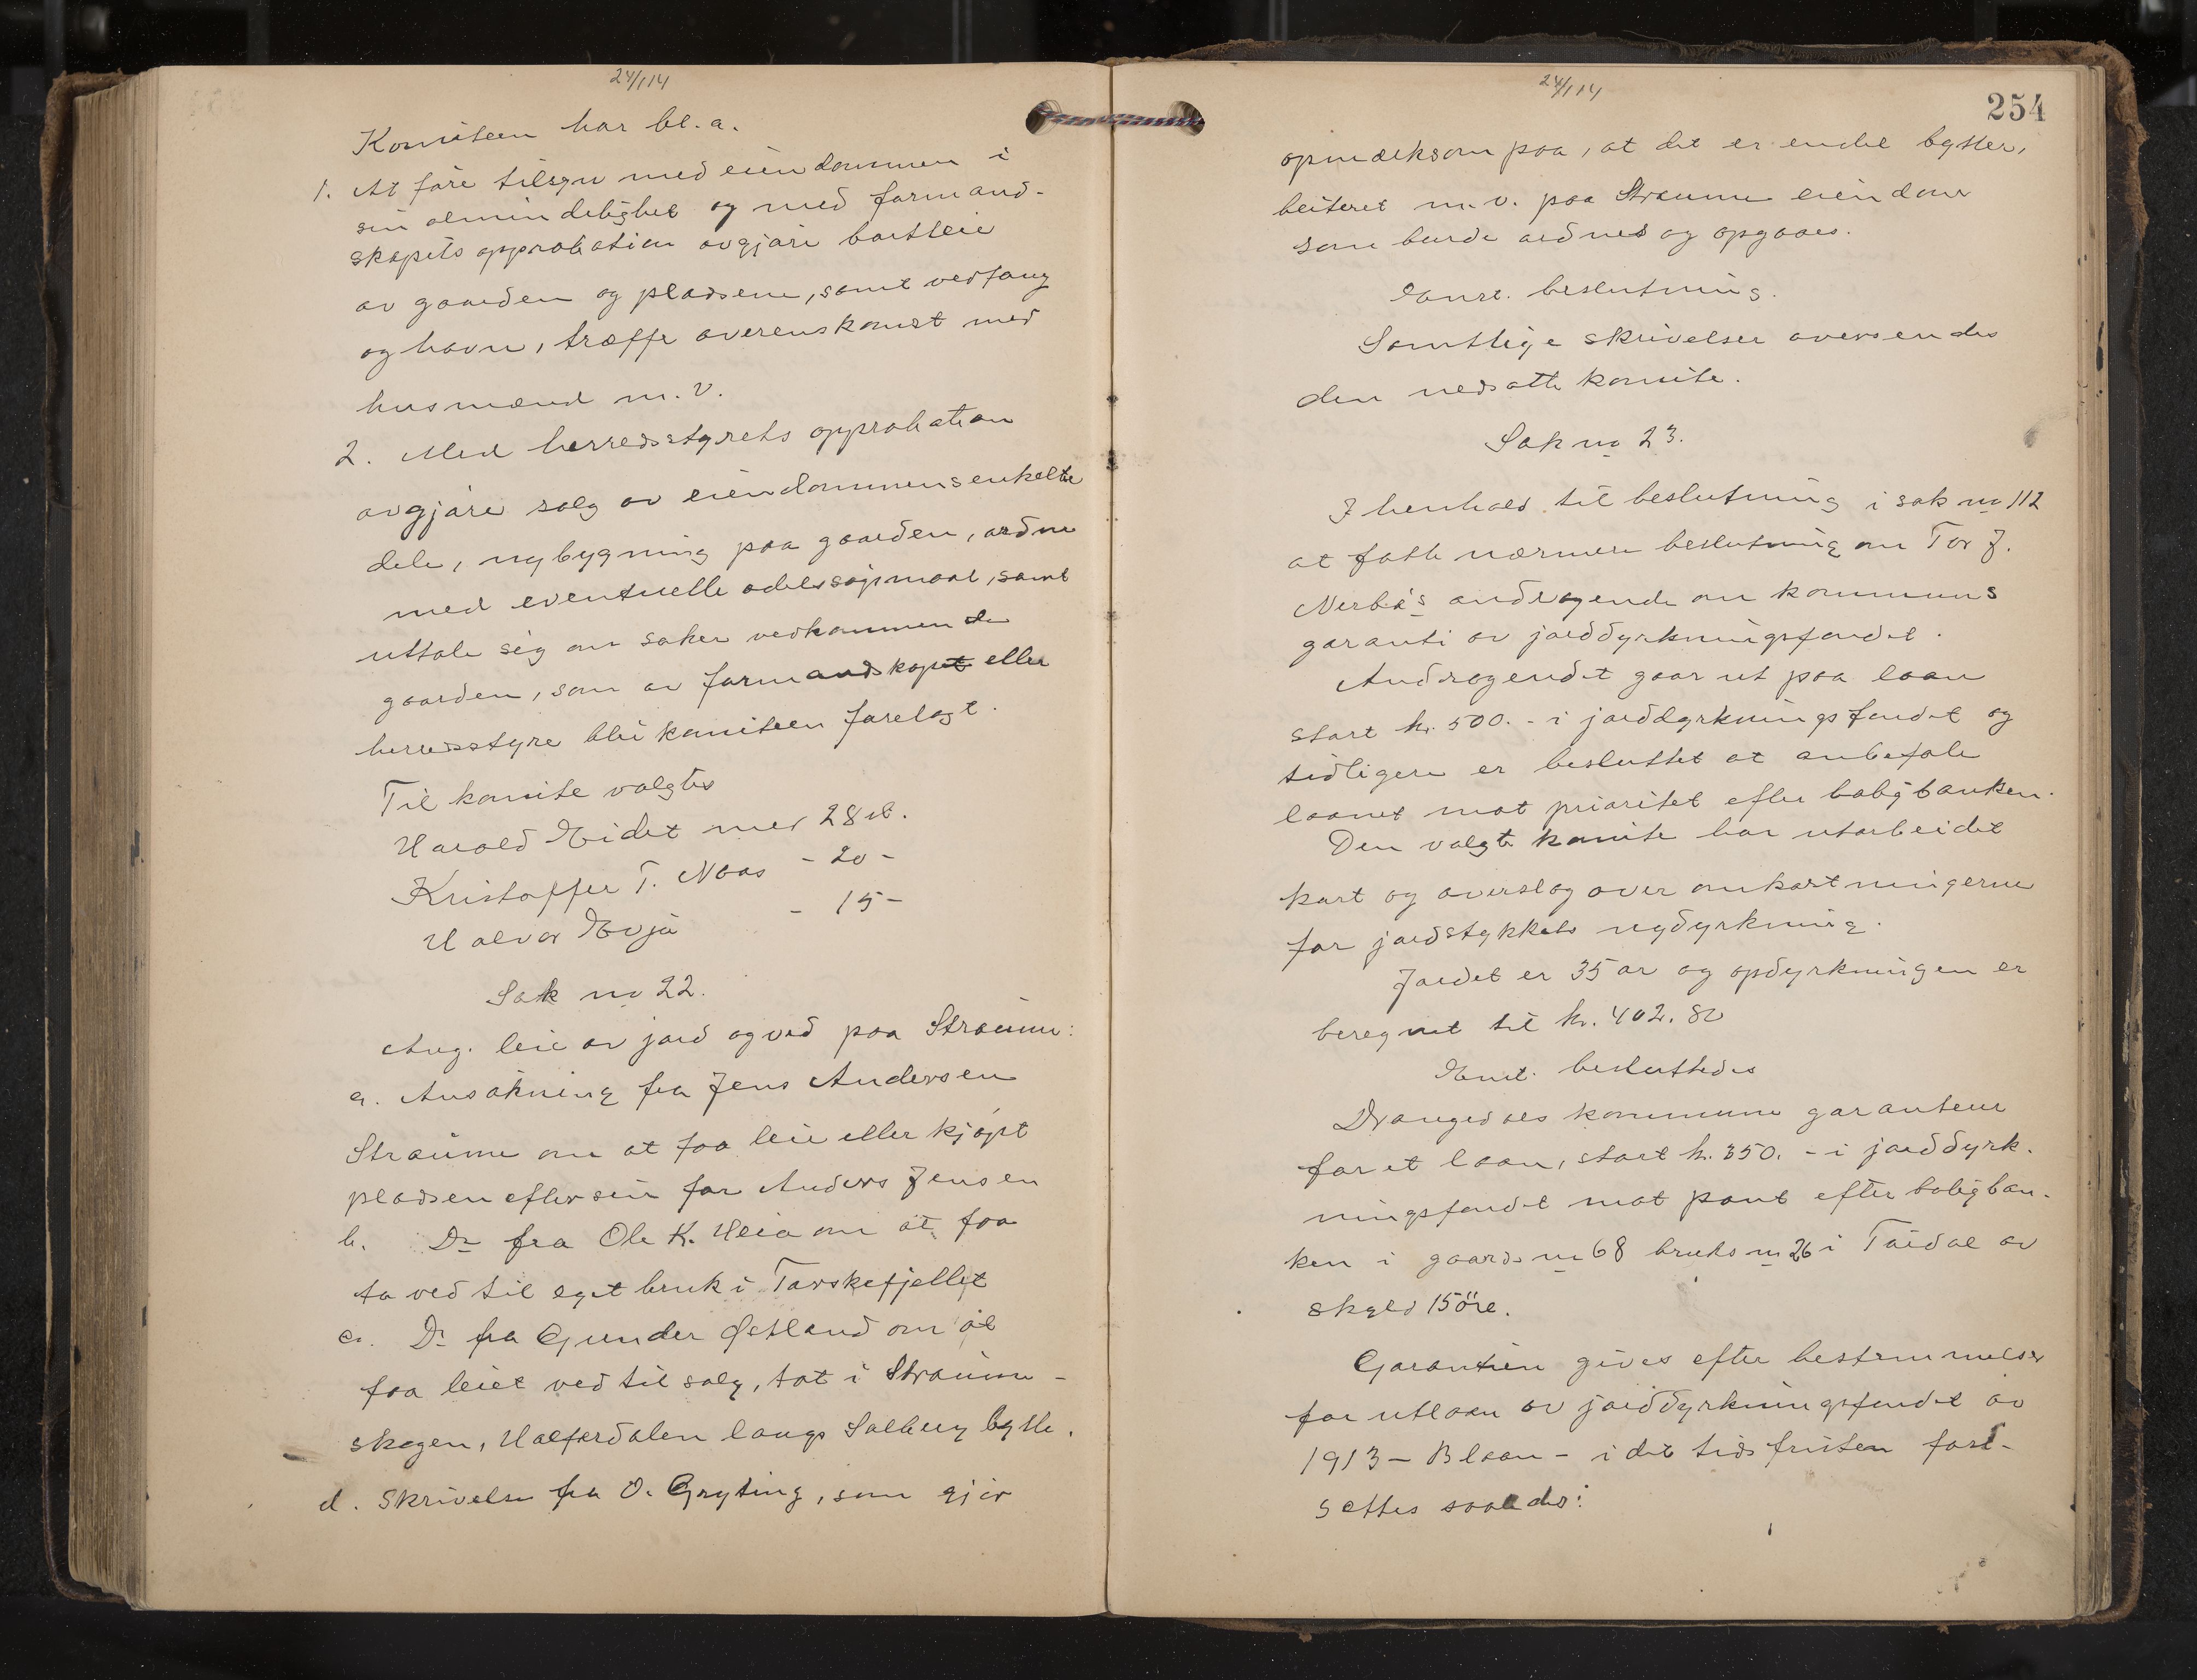 24/1 14
Komiteen har bl. a.
1. At føre tilsyn med eiendommen i
sin almindelighet og med formand-
skapets approbation avgjøre bortleie
av gaarden og pladsene, samt vedfang
og havn, træffe overenskomst med
husmænd m. v.
2. Med herredsstyrets approbation
avgjøre salg av eiendommens enkelte
dele, nybygning paa gaarden, ordne
med eventuelle odelssøjsmaal, samt
uttale sig om saker vedkommende
gaarden, som av formandskapet eller
herredsstyre blir komiteen forelagt.
Til komite valgtes
Harald Eidet med 28 st.
Kristoffer T. Naas - 20 -
Halvor Evju - 15 -
Sak no 22.
Ang. leie av jord og ved paa Straume:
a. Ansøkning fra Jens Andersen
Straume om at faa leie eller kjøpt
pladsen efter sin far Anders Jensen
b. Do fra Ole K. Heia om at faa
ta ved til eget bruk i Torskefjellet
c. Do fra Gunder Østland om at
faa leiet ved til salg, tat i Straume-
skogen, Halferdalen langs Solberg bytte.
d. Skrivelse fra O. Gryting, som gjør
24/1 14
254
opmerksom paa, at det er endel bytter,
beiteret m. v. paa Straume eiendom
som burde ordnes og opgaaes.
Enst. beslutning.
Samtlige skrivelser oversendes
den nedsatte komite.
Sak no 23.
I henhold til beslutning i sak no 112
at fatte nærmere beslutning om Tor J.
Nerbø's andragende om kommunens
garanti av jorddyrkningsfondet.
Andragendet gaar ut paa laan
stort kr. 500.- i jorddyrkningsfondet og
tidligere er besluttet at anbefale
laanet mot prioritet efter boligbanken.
Den valgte komite har utarbeidet
kart og overslag over omkostningerne
for jordstykkets nydyrkning.
Jordet er 35 ar og opdyrkningen er
beregnet til kr. 402.80
Enst. besluttedes
Drangedals kommune garanterer
for et laan, stort kr. 350.- i jorddyrk-
ningsfondet mot pant efter boligban-
ken i gaards no 68 bruks no 26 i Tørdal av
skyld 15 öre.
Garantien gives efter bestemmelser
for utlaan av jorddyrkningsfondet av
1913 - B laan - i det tidsfristen fast-
settes saaledes: